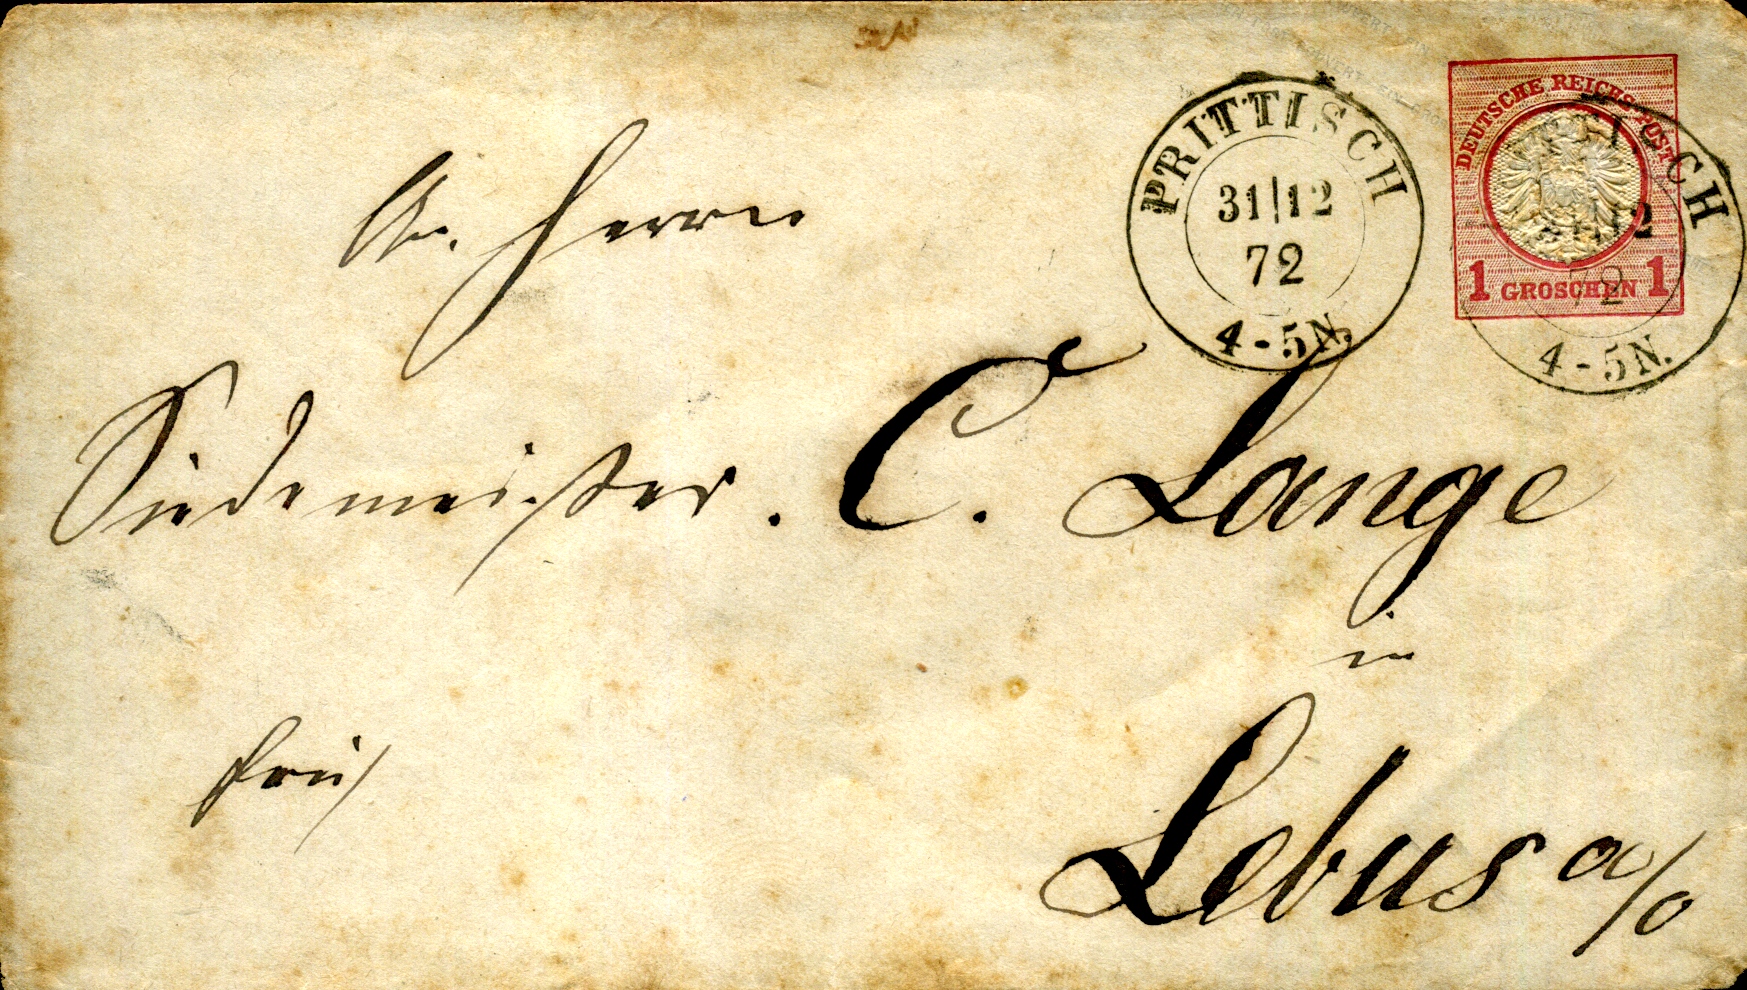 PRITTISCH
31|12
72
4-5N.
DEUTSCHE REICHS POST
1 GROSCHEN 1
TISCH
12
72
4-5N.
An Herrn
Siedemeister. C. Lange
in
frei
Lebus a/O